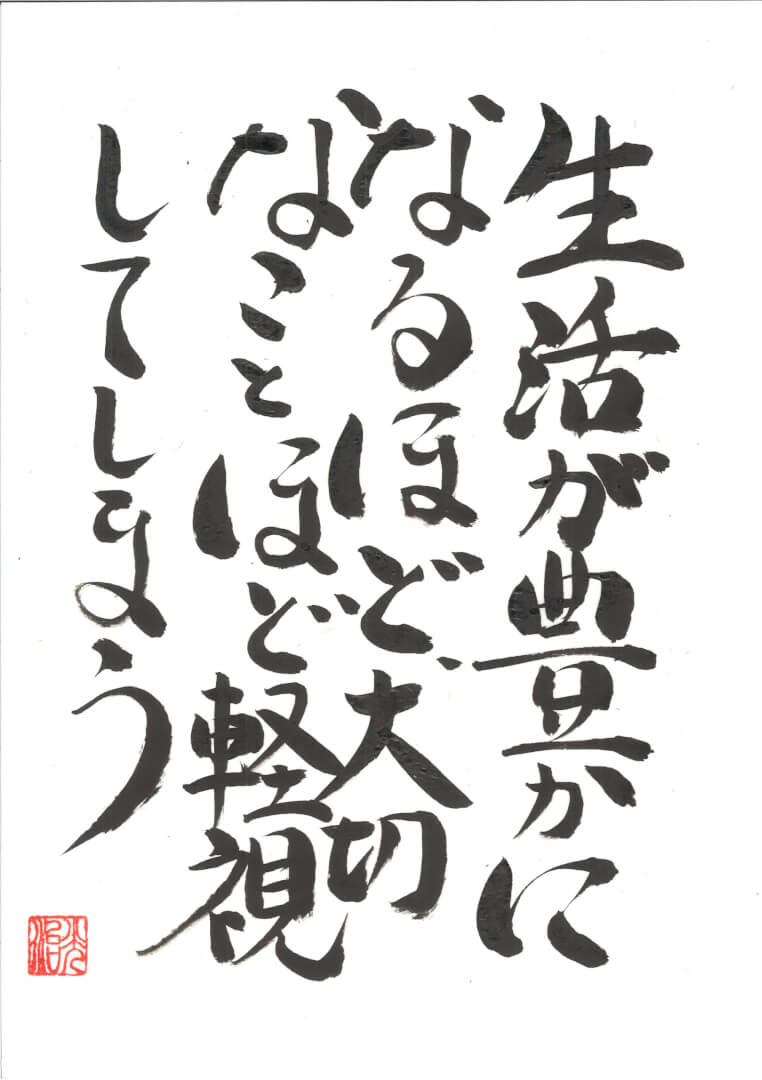 生活が豊かに
なるほど、大切
なことほど軽視
してしまう